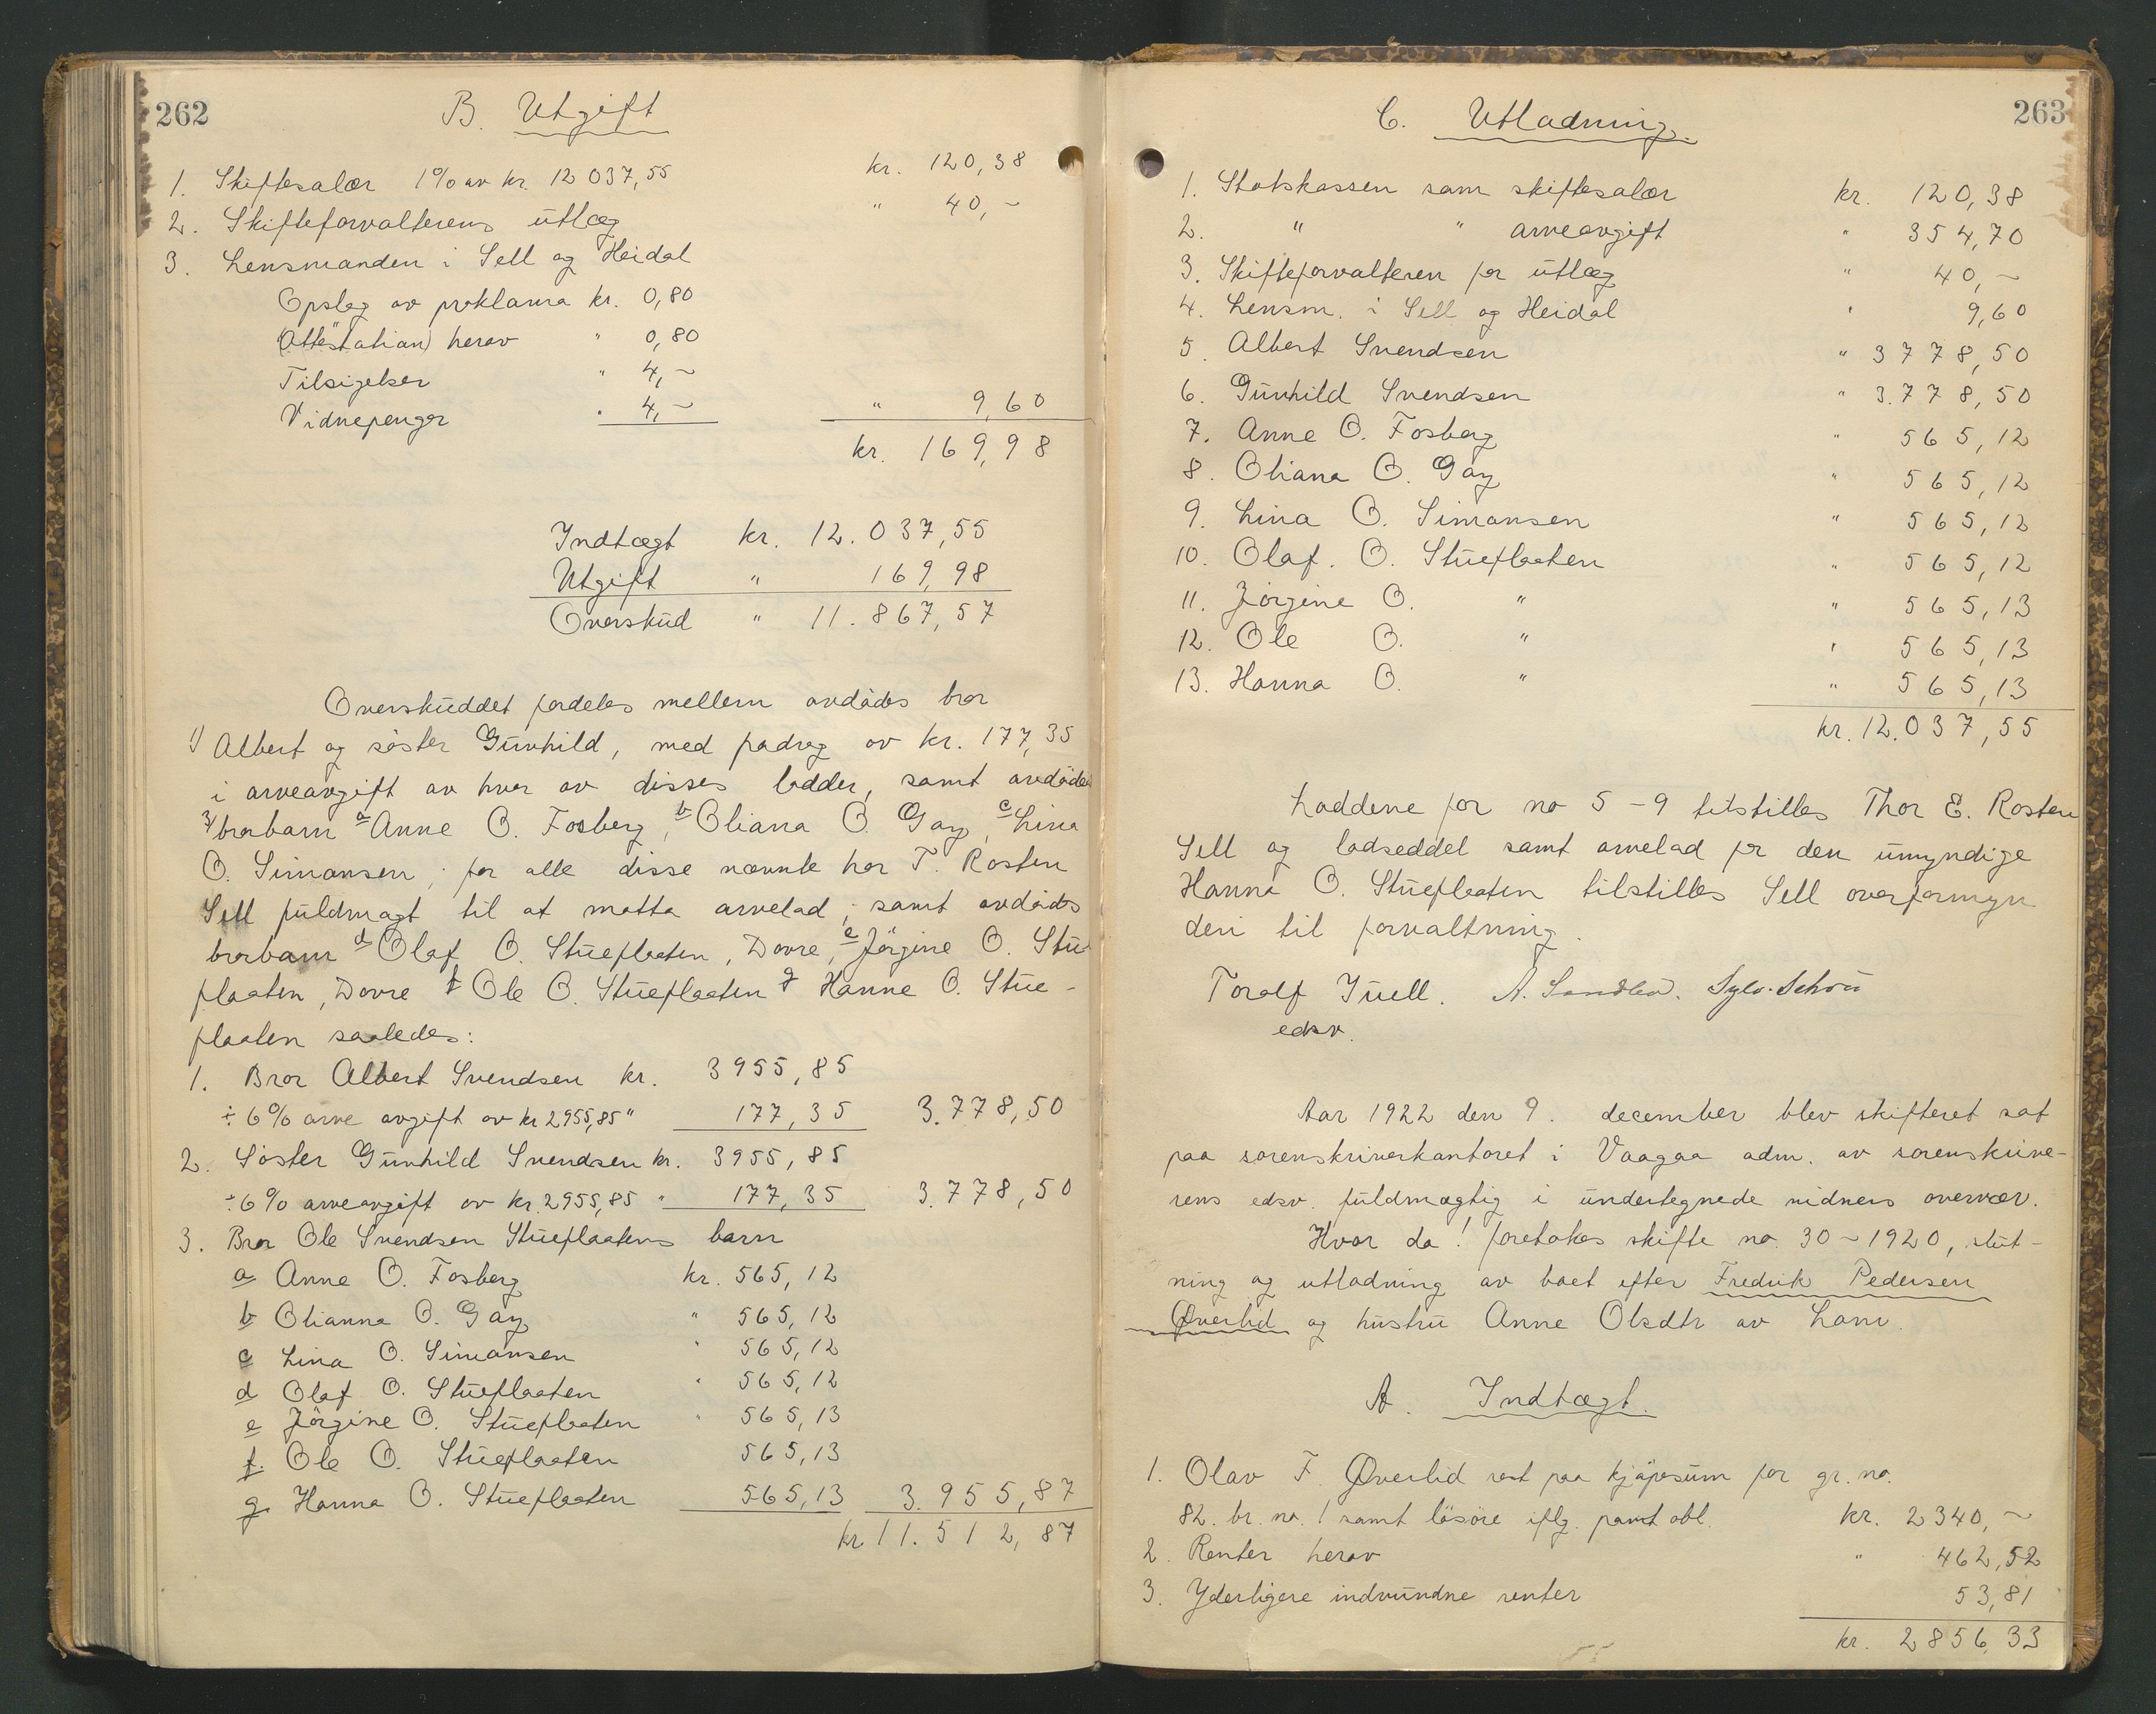 262
B. Utgift
1. Skiftesalær 1% av kr. 12 037,55 kr. 120,38
2. Skifteforvalterens utlæg " 40,~
3. Lensmanden i Sell og Heidal
Opslag av proklama kr. 0,80
(Attestation) herav " 0,80
Tilsigelser " 4,~
Vidnepenger " 4,~ " 9,60
kr. 169,98
Indtægt kr. 12.037,55
Utgift " 169,98
Overskud " 11.867,57
Overskuddet fordeles mellem avdødes bror
1) Albert og søster Gunhild, med fradrag av kr. 177,35
i arveavgift av hver av disses lodder, samt avdødes
3) brorbarn a Anne O. Fosberg, b Oliana O. Gay, c Lina
O. Simonsen; for alle disse nævnte har T. Rosten
Sell fuldmagt til at motta arvelod; samt avdødes
brorbarn d Olaf O. Stueflaaten, Dovre, e Jørgine O. Stue
flaaten, Dovre f Ole O. Stueflaaten g Hanne O. Stue-
flaaten saaledes:
1. Bror Albert Svendsen kr. 3955,85
÷ 6% arve avgift av kr 2955,85 " 177,35 3.778,50
2. Søster Gunhild Svendsen kr. 3955,85
÷ 6% arveavgift av kr. 2955,85 " 177,35 3.778,50
3. Bror Ole Svendsen Stueflaatens barn
a Anne O. Fosberg kr. 565,12
b Olianna O. Gay " 565,12
c Lina O. Simonsen " 565,12
d Olaf O. Stueflaaten " 565,12
e Jørgine O. Stueflaaten " 565,13
f. Ole O. Stueflaaten 565,13
g. Hanna O. Stueflaaten 565,13 3.955,87
kr 11.512,87
263
C. Utlodning.
1. Statskassen som skiftesalær kr. 120,38
2. " " arveavgift " 354,70
3. Skifteforvalteren for utlæg " 40,~
4. Lensm. i Sell og Heidal " 9,60
5. Albert Svendsen " 3778,50
6. Gunhild Svendsen " 3.778,50
7. Anne O. Fosberg " 565,12
8. Oliana O. Gay " 565,12
9. Lina O. Simonsen " 565,12
10. Olaf. O. Stueflaaten " 565,12
11. Jørgine O. " " 565,13
12. Ole O. " " 565,13
13. Hanna O. " " 565,13
kr. 12.037,55
Loddene for no 5-9 tilstilles Thor E. Rosten
Sell og lodseddel samt arvelod for den umyndige
Hanna O. Stueflaaten tilstilles Sell overformyn
deri til forvaltning.
Toralf Juell. A. Sandbu. Sylv. Schou
edsv.
Aar 1922 den 9. december blev skifteret sat
paa sorenskriverkontoret i Vaagaa adm. av sorenskrive-
rens edsv. fuldmægtig i undertegnede vidners overvær.
Hvor da! foretokes skifte no. 30-1920, slut-
ning og utlodning av boet efter Fredrik Pedersen
Øverlid og hustru Anne Olsdtr av Lom.
A. Indtægt.
1. Olav F. Øverlid rest paa kjøpesum for gr. no.
82. br. no. 1 samt løsøre iflg. pant obl. kr. 2340,~
2. Renter herav " 462,52
3. Yderligere indvundne renter 53,81
kr. 2856,33